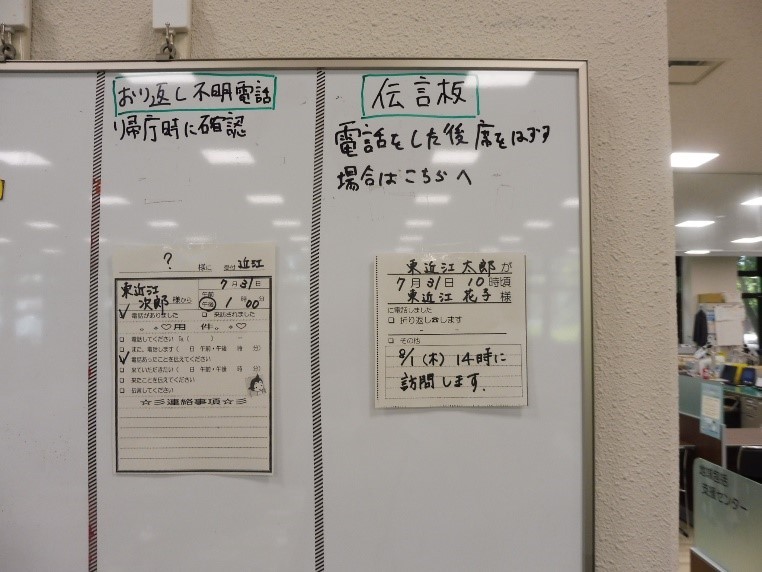 おり返し不明電話
帰庁時に確認
?
様に 受付 近江
7月31日
東近江
次郎 様から
午前
午後 1時00分
電話がありました 来訪されました
♡用 件♡
電話してください
また、電話します( 日 午前・午後 時 分)
電話あったことを伝えてください
来ていただきたい( 日 午前・午後 時 分)
来たことを伝えてください
伝言してください
☆彡連絡事項☆彡
伝言板
電話をした後席をはずす
場合はこちらへ
東近江 太郎が
7月31日 10時頃
東近江 花子様
に電話しました
折り返し☎します
その他
8/1(木)14時に
訪問します。
支援センター